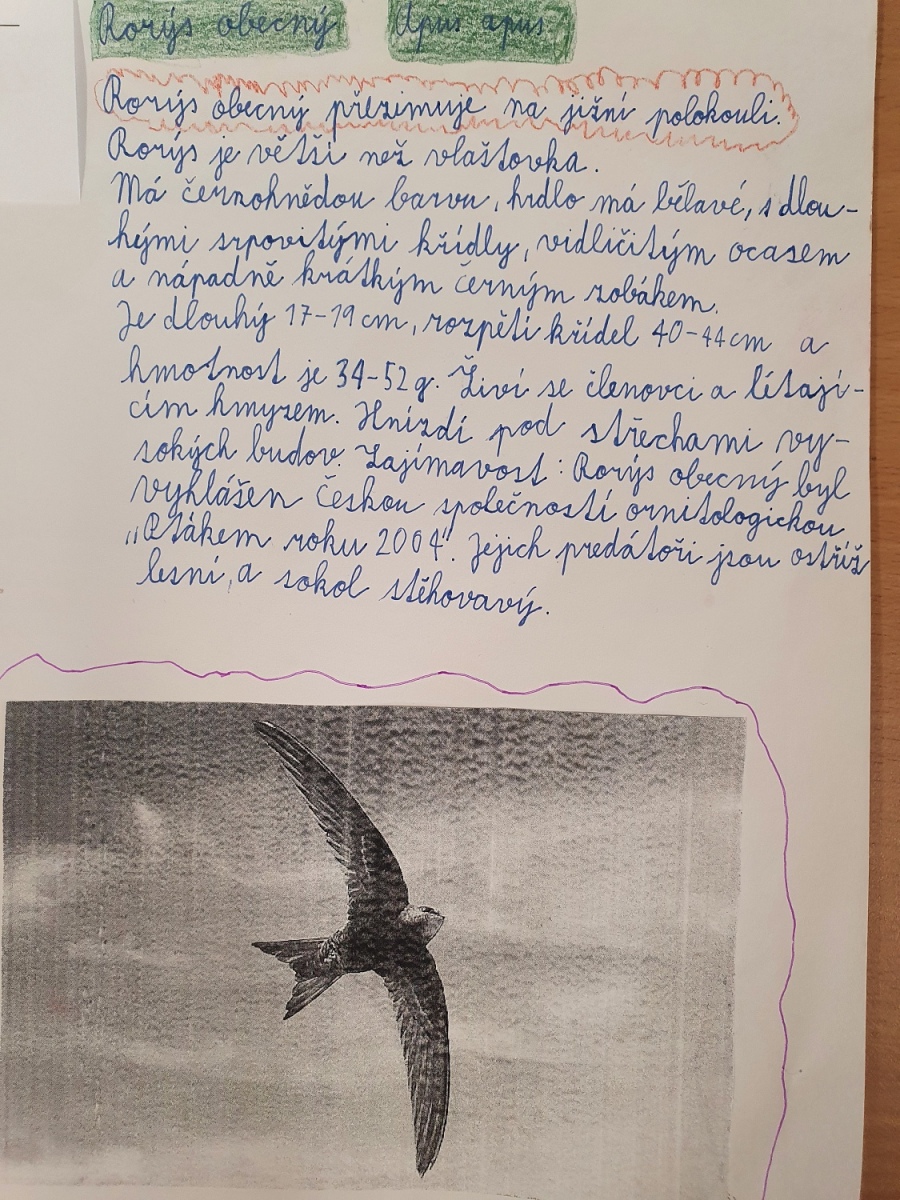 Rorýs obecný Apus apus
Rorýs obecný přezimuje na jižní polokouli.
Rorýs je větší než vlaštovka.
Má černohnědou barvu, hrdlo má bělavé, s dlou-
hými srpovitými křídly, vidličitým ocasem
a nápadně krátkým černým zobákem.
Je dlouhý 17-19cm, rozpětí křídel 40-44cm a
hmotnost je 34-52g. Živí se členovci a létají-
cím hmyzem. Hnízdí pod střechami vy-
sokých budov. Zajímavost: Rorýs obecný byl
vyhlášen českou společností ornitologickou
„Ptákem roku 2004". Jejich predátoři jsou ostříž
lesní, a sokol stěhovavý.